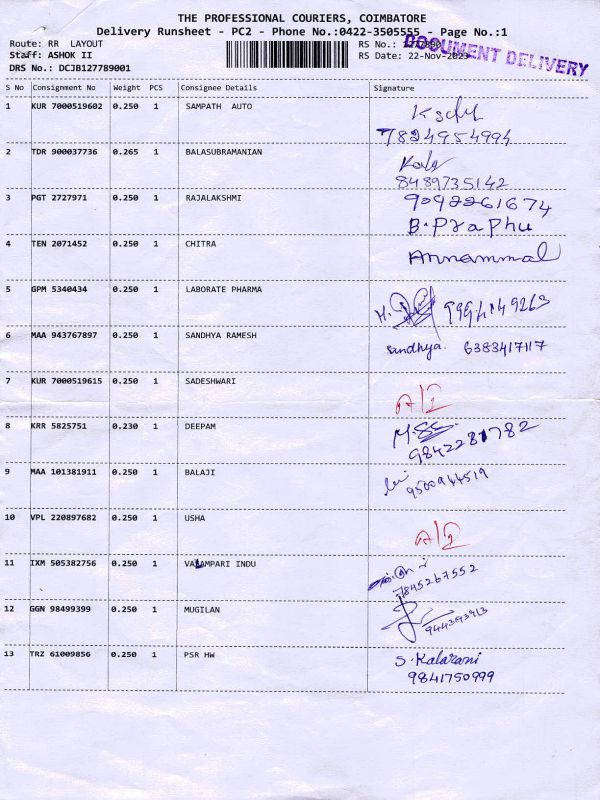 THE PROFESSIONAL COURIERS, COIMBATORE
Delivery Runsheet - PC2 - Phone No.:0422-3505555 - Page No.:1
Route: RR LAYOUT
RS No.:
DOCUMENT DELIVERY
Staff: ASHOK II
RS Date: 22-Nov-2023
DRS No.: DCJB127789001
S No Consignment No Weight PCS Consignee Details Signature
1 KUR 7000519602 0.250 1 SAMPATH AUTO
7824954994
2 TDR 900037736 0.265 1 BALASUBRAMANIAN
8489735142
3 PGT 2727971 0.250 1 RAJALAKSHMI 9092261674
B. Praphu
4 TEN 2071452 0.250 1 CHITRA Annammal
5 GPM 5340434 0.250 1 LABORATE PHARMA
6 MAA 943767897 0.250 1 SANDHYA RAMESH Sandhya. 6383417117
7 KUR 7000519615 0.250 1 SADESHWARI
8 KRR 5825751 0.230 1 DEEPAM
9842281782
9 MAA 101381911 0.250 1 BALAJI 9500944519
10 VPL 220897682 0.250 1 USHA
11 IXM 505382756 0.250 1 VALAMPARI INDU
7845267552
12 GGN 98499399 0.250 1 MUGILAN
13 TRZ 61009856 0.250 1 PSR HW S. Kalarani
9841750999